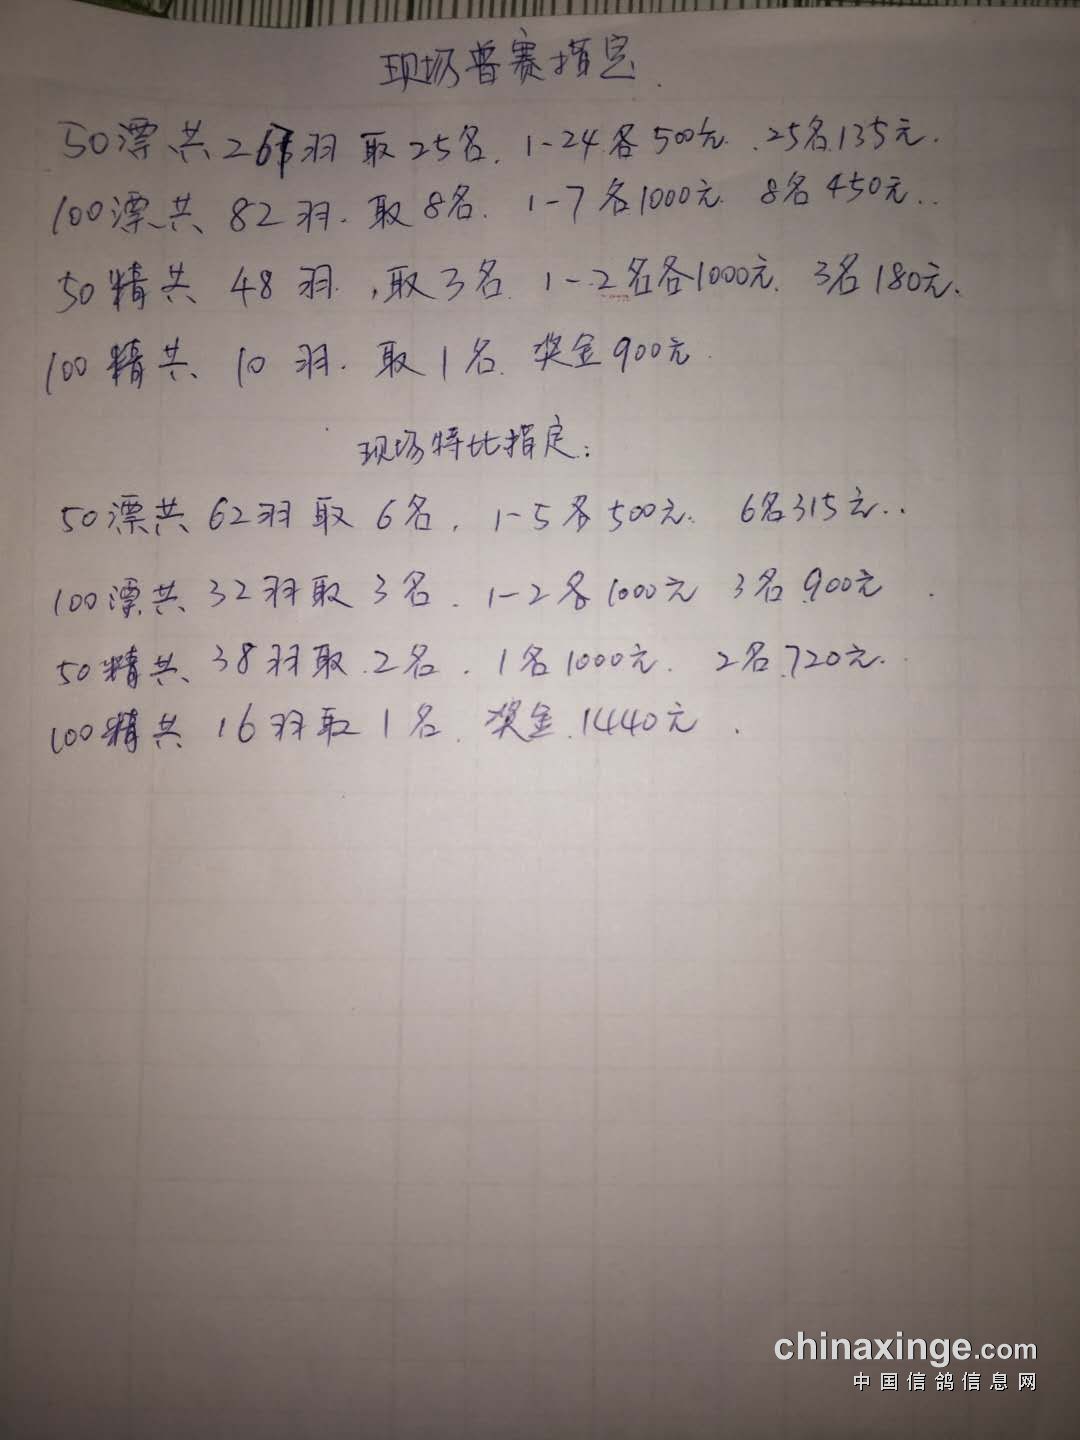 现场普赛指定
50漂共 羽 取25名. 1-24各500元. 25名135元.
100漂共 82羽. 取8名. 1-7各1000元. 8名450元..
50精共 48羽. ,取3名. 1-2名各1000元. 3名180元.
100精共 10羽. 取1名. 奖金900元.
现场特比指定:
50漂共 62羽取6名. 1-5各500元. 6名315元..
100漂共 32羽取3名. 1-2各1000元 3名900元.
50精共 38羽取2名. 1名1000元. 2名720元..
100精共 16羽取1名. 奖金1440元.
chinaxinge.com
中国信鸽信息网